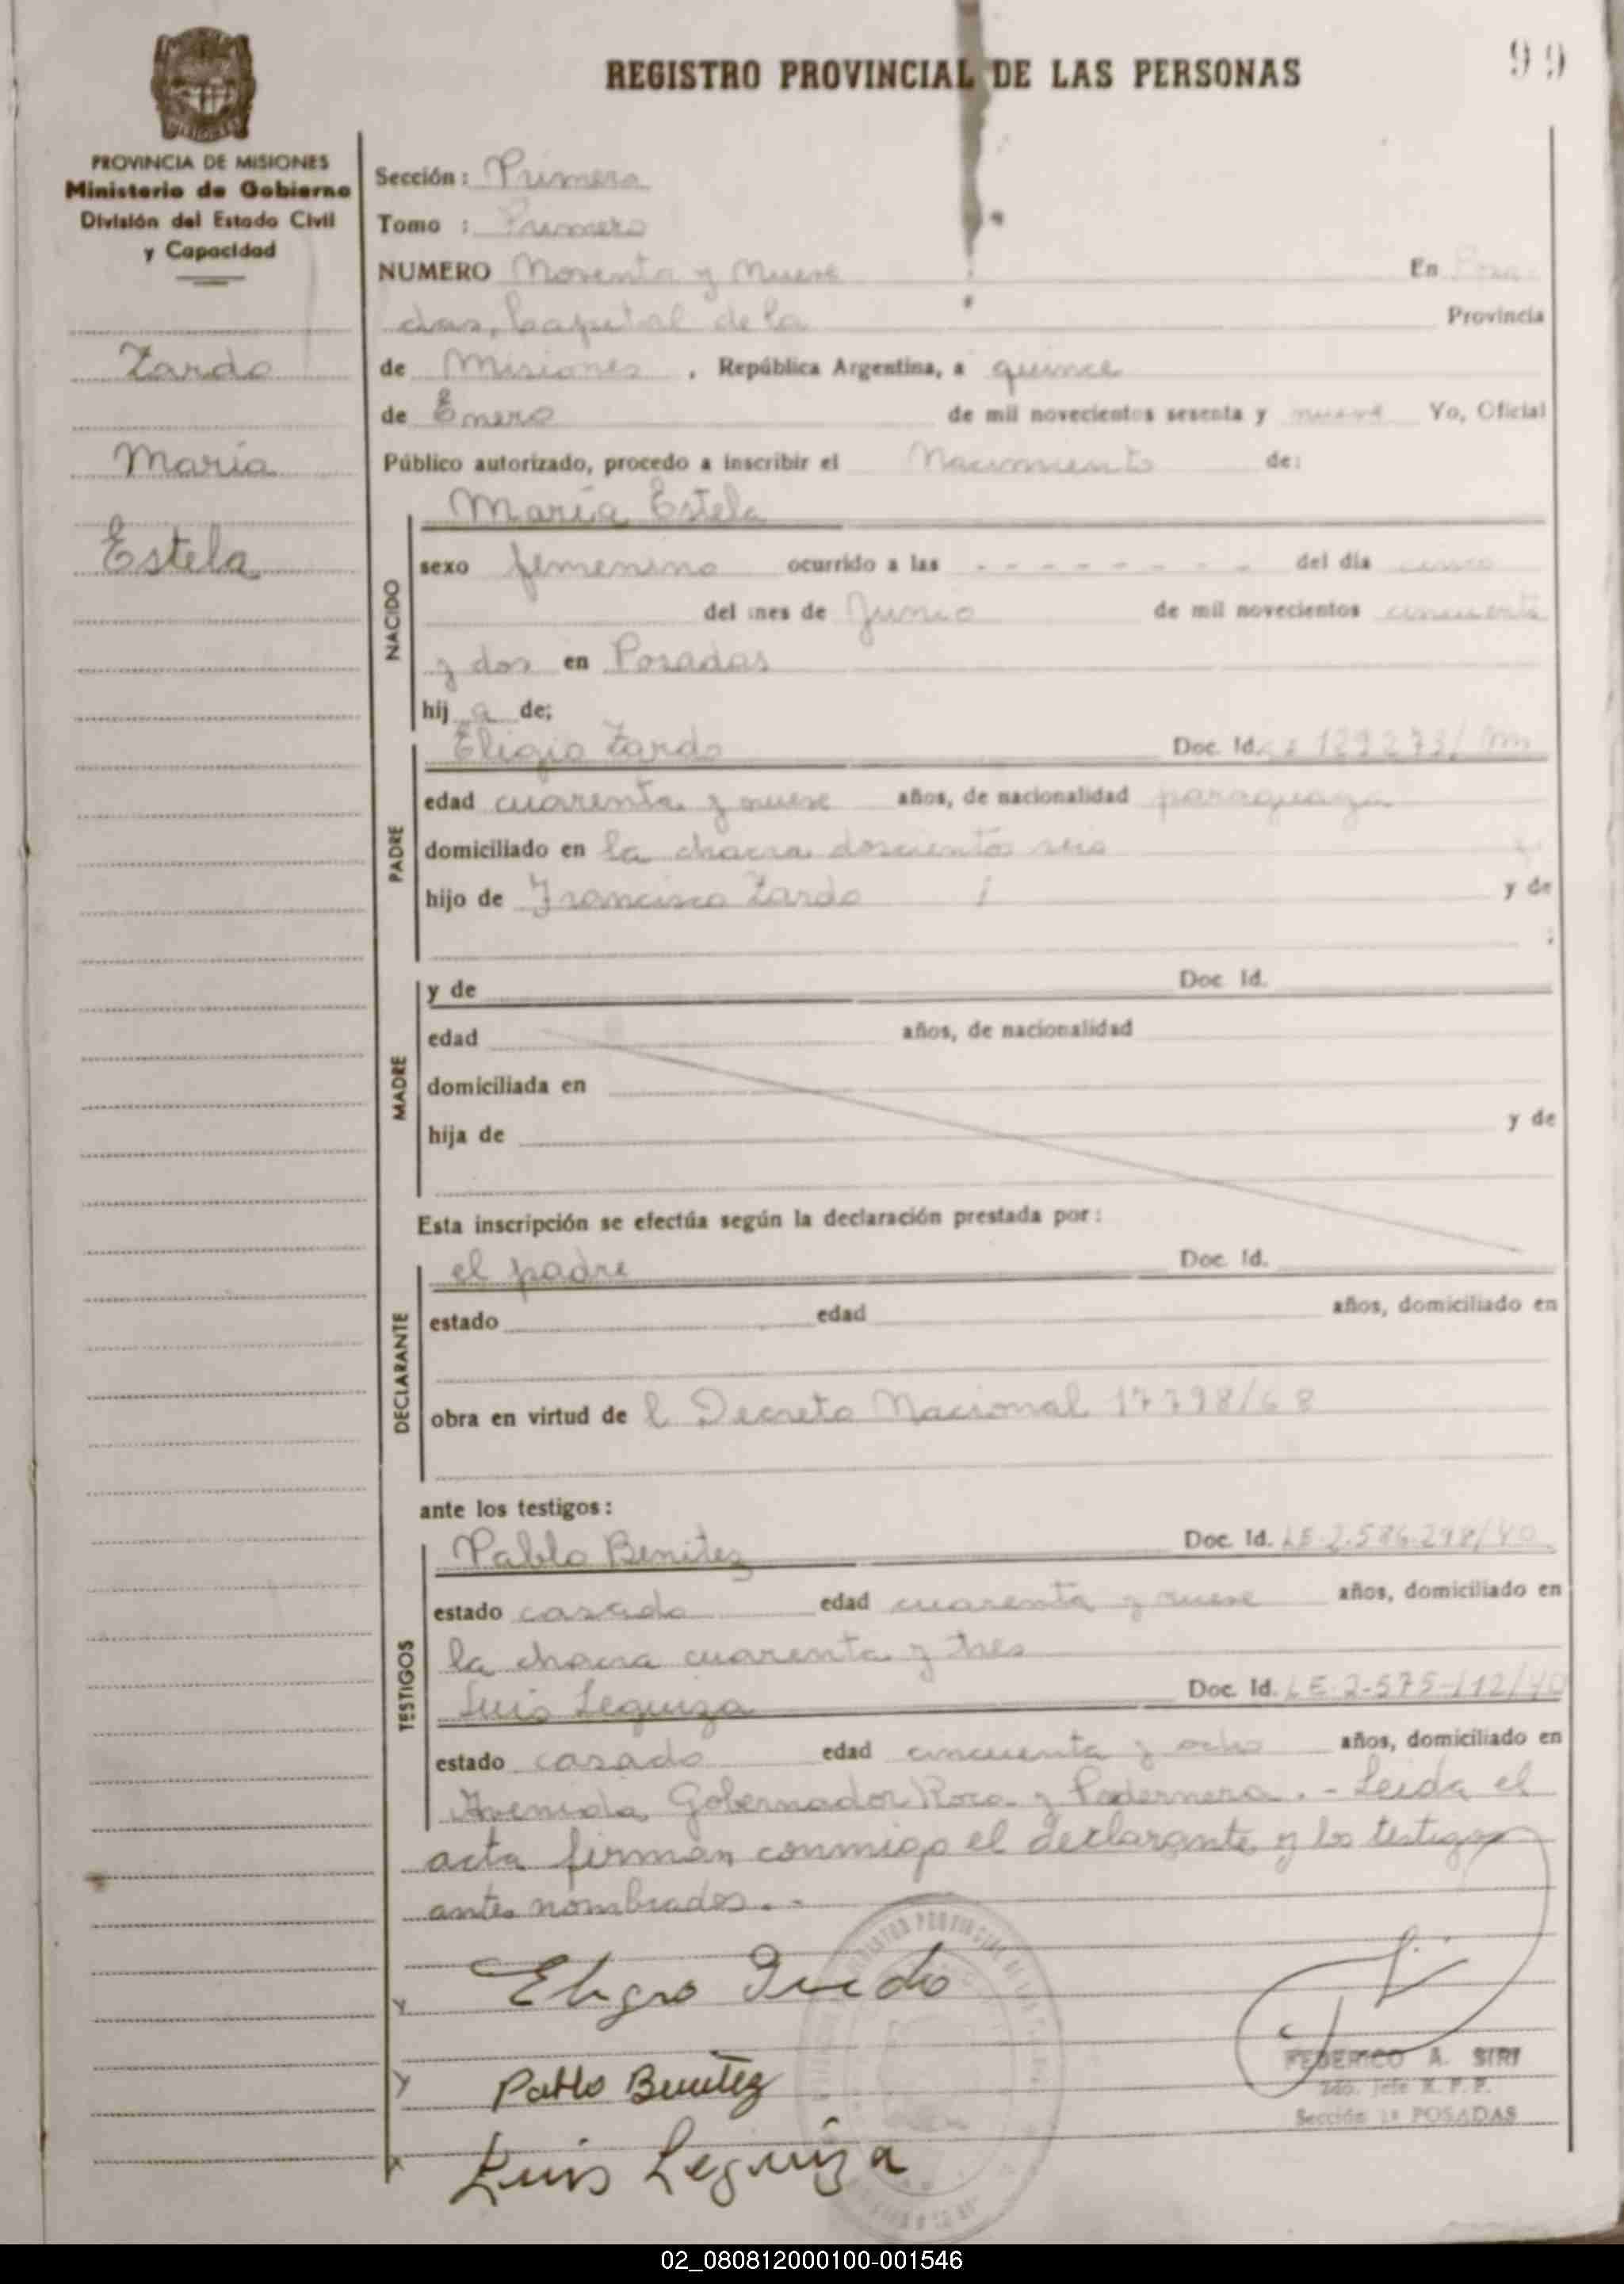 REGISTRO PROVINCIAL DE LAS PERSONAS
99
PROVINCIA DE MISIONES
Ministerio de Gobierno
División del Estado Civil
y Capacidad
Zardo
María
Estela
Sección: Primera
Tomo : Primero
NUMERO Noventa y Nueve En Posa
das, Capital de la Provincia
de Misiones, República Argentina, a quince
de Enero de mil novecientos sesenta y nueve Yo, Oficial
Público autorizado, procedo a inscribir el Nacimiento de:
NACIDO
María Estela
sexo femenino ocurrido a las - - - - - - - - del día
del mes de Junio de mil novecientos cincuenta
y dos en Posadas
hij a de;
PADRE
Eligio Zardo Doc. Id. 129273/
edad cuarenta y nueve años, de nacionalidad paraguaya
domiciliado en la chacra doscientos seis
hijo de Francisco Zardo y de
;
MADRE
y de Doc. Id.
edad años, de nacionalidad
domiciliada en
hija de y de
Esta inscripción se efectúa según la declaración prestada por:
DECLARANTE
el padre Doc. Id.
estado edad años, domiciliado en
obra en virtud de l Decreto Nacional 17798/68
ante los testigos:
TESTIGOS
Pablo Benitez Doc. Id. LE-2.586.298/40
estado casado edad cuarenta y nueve años, domiciliado en
la chacra cuarenta y tres
Luis Leguiza Doc. Id. LE-2-575-112/40
estado casado edad cincuenta y ocho años, domiciliado en
Avenida Gobernador Roca y Pedernera. - Leida el
acta firman conmigo el declarante y los testigos
antes nombrados. -
Eligio
Pablo Benitez
Luis Leguiza
FEDERICO A. SIRI
2do. Jefe R. P. P.
Sección 1ª POSADAS
02_080812000100-001546